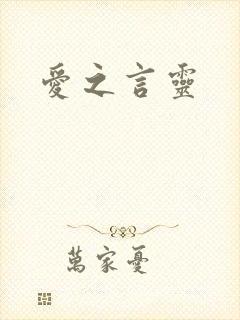 愛之言靈
萬家憂